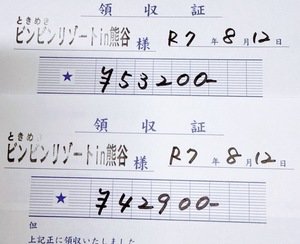 領収証
ときめき
ピンピンリゾートin熊谷 様 R7年8月12日
★ ¥53200-
領収証
ときめき
ピンピンリゾートin熊谷 様 R7年8月12日
★ ¥42900-
但
上記正に領収いたしました